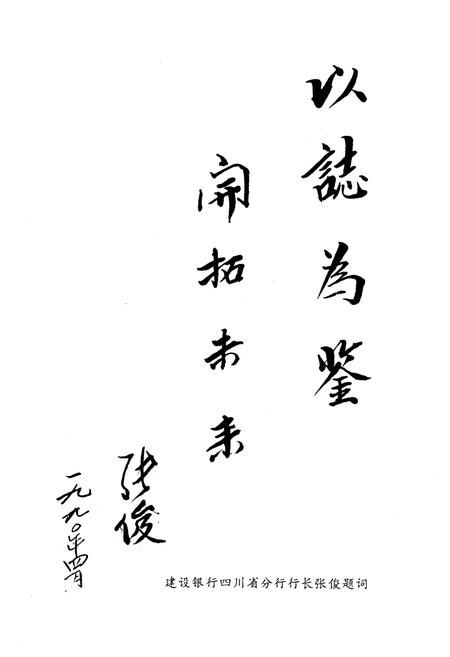 以誌為鉴
開拓未来
张俊
一九九〇年四月
建设银行四川省分行行长张俊题词